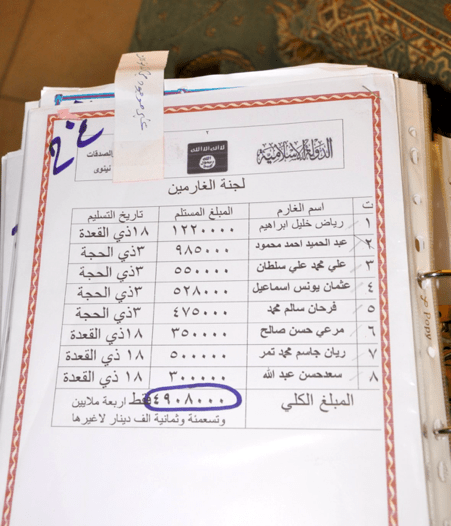 الدولة الإسلامية
لا اله الا الله
الصدقات
نينوى
لجنة الغارمين
ت اسم الغارم المبلغ المستلم تاريخ التسليم
١ رياض خليل ابراهيم ١٢٢٠٠٠٠ ١٨ ذي القعدة
٢ عبد الحميد احمد محمود ٩٨٥٠٠٠ ٣ ذي الحجة
٣ علي محمد علي سلطان ٥٥٠٠٠٠ ٣ ذي الحجة
٤ عثمان يونس اسماعيل ٥٢٨٠٠٠ ٣ ذي الحجة
٥ فرحان سالم محمد ٤٧٥٠٠٠ ٣ ذي الحجة
٦ مرعي حسن صالح ٣٥٠٠٠٠ ١٨ ذي القعدة
٧ ريان جاسم محمد تمر ٥٠٠٠٠٠ ١٨ ذي القعدة
٨ سعدحسن عبد الله ٣٠٠٠٠٠ ١٨ ذي القعدة
المبلغ الكلي ٤٩٠٨٠٠٠ فقط اربعة ملايين
وتسعمئة وثمانية الف دينار لاغيرها